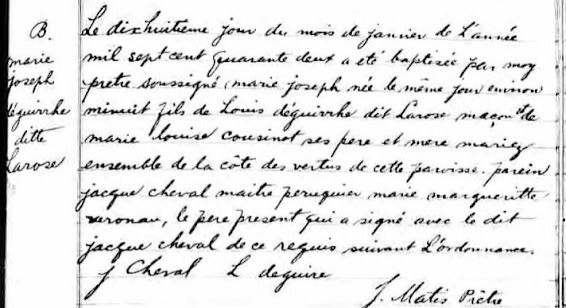 B.
marie
joseph
déguirrhe
ditte
Larose
Le dixhuitieme jour du mois de janvier de L'année
mil sept cent quarante deux a été baptisée par moy
pretre soussigné, marie joseph née le même jour environ
minuit fils de Louis déguirrhe dit Larose maçon et de
marie louise cousinot ses pere et mere mariez
ensemble de la côte des vertus de cette paroisse. parein
jacque cheval maitre peruquier marie margueritte
, le pere present qui a signé avec le dit
jacque cheval de ce requis suivant L'ordonnance.
J Cheval L deguire
J. Matis Prêtre